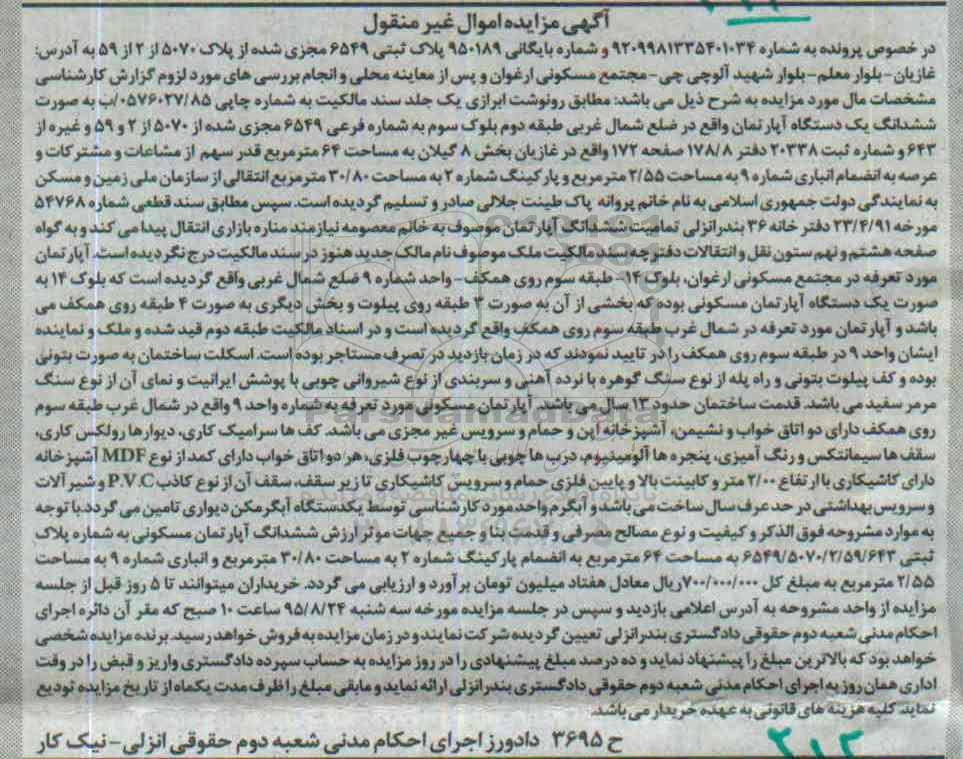 آگهی مزایده اموال غیر منقول
در خصوص پرونده به شماره ۹۲۰۹۹۸۱۳۳۵۴۰۱۰۳۴ و شماره بایگانی ۹۵۰۱۸۹ پلاک ثبتی ۶۵۴۹ مجزی شده از پلاک ۵۰۷۰ از ۲ از ۵۹ به آدرس:
غازیان-بلوار معلم-بلوار شهید آلوچی چی-مجتمع مسکونی ارغوان و پس از معاینه محلی و انجام بررسی های مورد لزوم گزارش کارشناسی
مشخصات مال مورد مزایده به شرح ذیل می باشد: مطابق رونوشت ابرازی یک جلد سند مالکیت به شماره چاپی ۰۵۷۶۰۲۷/۸۵/ب به صورت
ششدانگ یک دستگاه آپارتمان واقع در ضلع شمال غربی طبقه دوم بلوک سوم به شماره فرعی ۶۵۴۹ مجزی شده از ۵۰۷۰ از ۲ و ۵۹ و غیره از
۶۴۳ و شماره ثبت ۲۰۳۳۸ دفتر ۱۷۸/۸ صفحه ۱۷۲ واقع در غازیان بخش ۸ گیلان به مساحت ۶۴ مترمربع قدر سهم از مشاعات و مشترکات و
عرصه به انضمام انباری شماره ۹ به مساحت ۲/۵۵ مترمربع و پارکینگ شماره ۲ به مساحت ۳۰/۸۰ مترمربع انتقالی از سازمان ملی زمین و مسکن
به نمایندگی دولت جمهوری اسلامی به نام خانم پروانه پاک طینت جلالی صادر و تسلیم گردیده است. سپس مطابق سند قطعی شماره ۵۴۷۶۸
مورخه ۲۳/۴/۹۱ دفتر خانه ۳۶ بندرانزلی تمامیت ششدانگ آپارتمان موصوف به خانم معصومه نیازمند مناره بازاری انتقال پیدا می کند و به گواه
صفحه هشتم و نهم ستون نقل و انتقالات دفترچه سند مالکیت ملک موصوف نام مالک جدید هنوز در سند مالکیت درج نگردیده است. آپارتمان
مورد تعرفه در مجتمع مسکونی ارغوان، بلوک ۱۴- طبقه سوم روی همکف- واحد شماره ۹ ضلع شمال غربی واقع گردیده است که بلوک ۱۴ به
صورت یک دستگاه آپارتمان مسکونی بوده که بخشی از آن به صورت ۳ طبقه روی پیلوت و بخش دیگری به صورت ۴ طبقه روی همکف می
باشد و آپارتمان مورد تعرفه در شمال غرب طبقه سوم روی همکف واقع گردیده است و در اسناد مالکیت طبقه دوم قید شده و ملک و نماینده
ایشان واحد ۹ در طبقه سوم روی همکف را در تایید نمودند که در زمان بازدید در تصرف مستاجر بوده است. اسکلت ساختمان به صورت بتونی
بوده و کف پیلوت بتونی و راه پله از نوع سنگ گوهره با نرده آهنی و سربندی از نوع شیروانی چوبی با پوشش ایرانیت و نمای آن از نوع سنگ
مرمر سفید می باشد. قدمت ساختمان حدود ۱۳ سال می باشد. آپارتمان مسکونی مورد تعرفه به شماره واحد ۹ واقع در شمال غرب طبقه سوم
روی همکف دارای دو اتاق خواب و نشیمن، آشپزخانه اپن و حمام و سرویس غیر مجزی می باشد. کف ها سرامیک کاری، دیوارها رولکس کاری،
سقف ها سیمانتکس و رنگ آمیزی، پنجره ها آلومینیوم، درب ها چوبی با چهارچوب فلزی، هر دو اتاق خواب دارای کمد از نوع MDF آشپزخانه
دارای کاشیکاری با ارتفاع ۲/۰۰ متر و کابینت بالا و پایین فلزی حمام و سرویس کاشیکاری تا زیر سقف، سقف آن از نوع کاذب P.V.C و شیرآلات
و سرویس بهداشتی در حد عرف سال ساخت می باشد و آبگرم واحد مورد کارشناسی توسط یکدستگاه آبگرمکن دیواری تامین می گردد. با توجه
به موارد مشروحه فوق الذکر و کیفیت و نوع مصالح مصرفی و قدمت بنا و جمیع جهات موثر ارزش ششدانگ آپارتمان مسکونی به شماره پلاک
ثبتی ۶۵۴۹/۵۰۷۰/۲/۵۹/۶۴۳ به مساحت ۶۴ مترمربع به انضمام پارکینگ شماره ۲ به مساحت ۳۰/۸۰ مترمربع و انباری شماره ۹ به مساحت
۲/۵۵ مترمربع به مبلغ کل ۷۰۰/۰۰۰/۰۰۰ریال معادل هفتاد میلیون تومان برآورد و ارزیابی می گردد. خریداران میتوانند تا ۵ روز قبل از جلسه
مزایده از واحد مشروحه به آدرس اعلامی بازدید و سپس در جلسه مزایده مورخه سه شنبه ۹۵/۸/۲۴ ساعت ۱۰ صبح که مقر آن دائره اجرای
احکام مدنی شعبه دوم حقوقی دادگستری بندرانزلی تعیین گردیده شرکت نمایند و در زمان مزایده به فروش خواهد رسید. برنده مزایده شخصی
خواهد بود که بالاترین مبلغ را پیشنهاد نماید و ده درصد مبلغ پیشنهادی را در روز مزایده به حساب سپرده دادگستری واریز و قبض را در وقت
اداری همان روز به اجرای احکام مدنی شعبه دوم حقوقی دادگستری بندرانزلی ارائه نماید و مابقی مبلغ را ظرف مدت یکماه از تاریخ مزایده تودیع
نماید. کلیه هزینه های قانونی به عهده خریدار می باشد.
ح ۳۶۹۵ دادورز اجرای احکام مدنی شعبه دوم حقوقی انزلی-نیک کار
۲۱۲